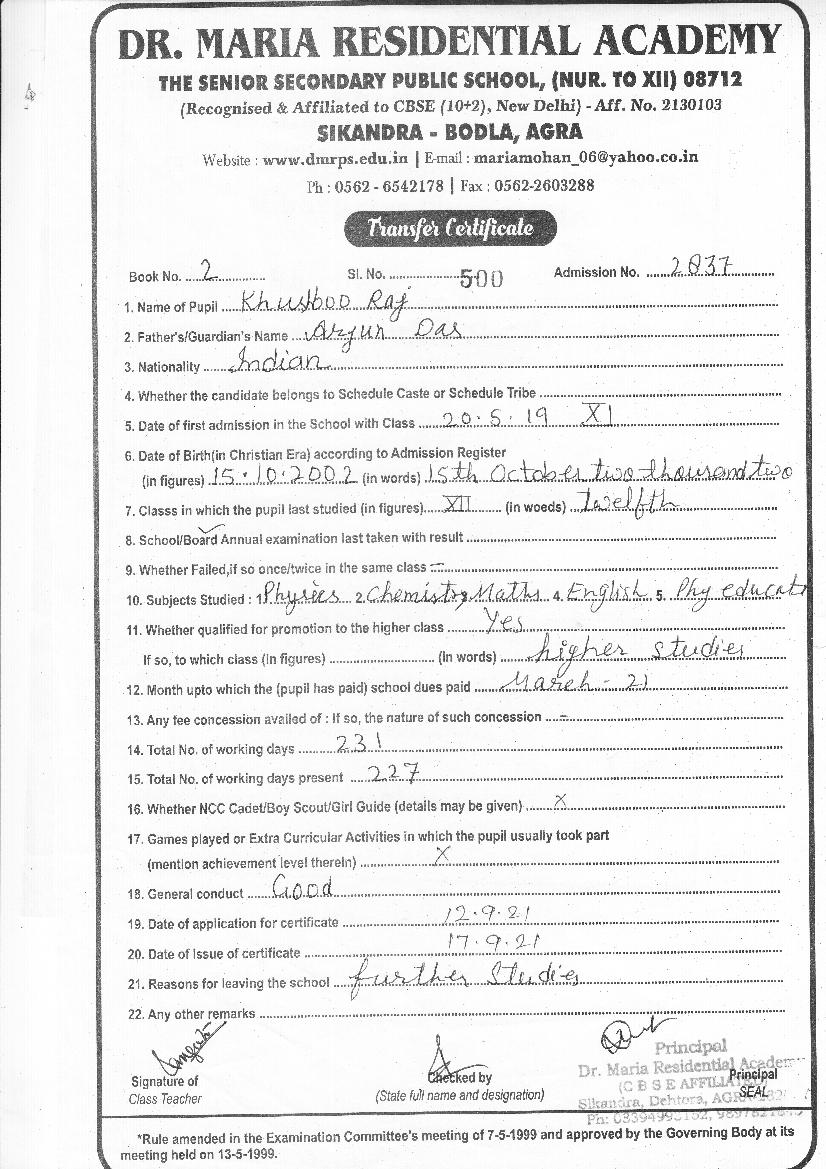 DR. MARIA RESIDENTIAL ACADEMY
THE SENIOR SECONDARY PUBLIC SCHOOL, (NUR. TO XII) 08712
(Recognised & Affiliated to CBSE (10+2), New Delhi) - Aff. No. 2130103
SIKANDRA - BODLA, AGRA
Website : www.dmrps.edu.in | E-mail : mariamohan_06@yahoo.co.in
Ph : 0562 - 6542178 | Fax : 0562-2603288
Transfer Certificate
Book No. 2 Sl. No. 500 Admission No. 2837
1. Name of Pupil Khushboo Raj
2. Father's/Guardian's Name Arjun Das
3. Nationality Indian
4. Whether the candidate belongs to Schedule Caste or Schedule Tribe
5. Date of first admission in the School with Class 20.5.19 XI
6. Date of Birth(in Christian Era) according to Admission Register
(in figures) 15.10.2002 (in words) 15th October two thousand two
7. Classs in which the pupil last studied (in figures) XII (in woeds) Twelfth
8. School/Board Annual examination last taken with result
9. Whether Failed,if so once/twice in the same class -
10. Subjects Studied : 1. Physics 2. Chemistry, Maths 4. English 5. Phy educat
11. Whether qualified for promotion to the higher class Yes
If so, to which class (in figures) (in words) higher studies
12. Month upto which the (pupil has paid) school dues paid March - 21
13. Any fee concession availed of : If so, the nature of such concession -
14. Total No. of working days 231
15. Total No. of working days present 227
16. Whether NCC Cadet/Boy Scout/Girl Guide (details may be given) X
17. Games played or Extra Curricular Activities in which the pupil usually took part
(mention achievement level therein) X
18. General conduct Good
19. Date of application for certificate 12.9.21
20. Date of Issue of certificate 17.9.21
21. Reasons for leaving the school further Studies
22. Any other remarks
Principal
Dr. Maria Residential Academy
(C B S E AFFILIATED)
Sikandra, Dehtora, AGRA
Signature of Checked by Principal
Class Teacher (State full name and designation) SEAL
*Rule amended in the Examination Committee's meeting of 7-5-1999 and approved by the Governing Body at its
meeting held on 13-5-1999.